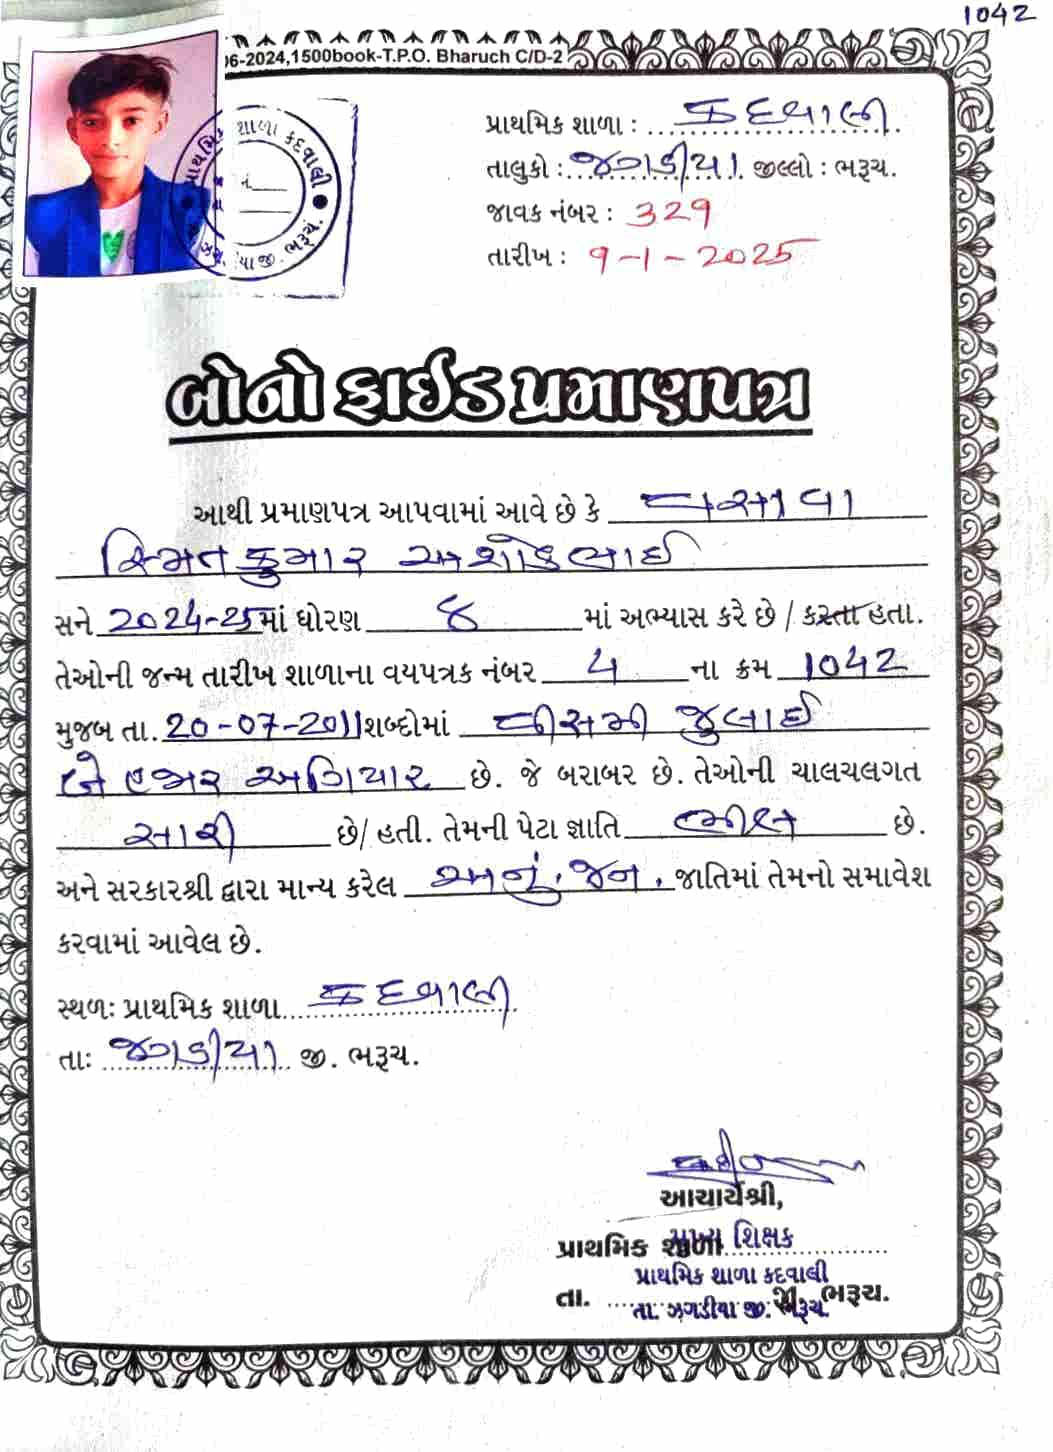 1042
06-2024,1500book-T.P.O. Bharuch C/D-2
પ્રાથમિક શાળા કદવાલી
જી. ભરૂચ.
પ્રાથમિક શાળા : કદવાલી
તાલુકો : ઝગડીયા. જીલ્લો : ભરૂચ.
જાવક નંબર : 329
તારીખ : 9-1-2025
બોનોફાઈડ પ્રમાણપત્ર
આથી પ્રમાણપત્ર આપવામાં આવે છે કે વસાવા
સ્મિતકુમાર અશોકભાઈ
સને 2024-25માં ધોરણ ૪ માં અભ્યાસ કરે છે / કરતા હતા.
તેઓની જન્મ તારીખ શાળાના વયપત્રક નંબર 4 ના ક્રમ 1042
મુજબ તા. 20-07-2011 શબ્દોમાં વીસમી જુલાઈ
બે હજાર અગિયાર છે. જે બરાબર છે. તેઓની ચાલચલગત
સારી છે/ હતી. તેમની પેટા જ્ઞાતિ ભીલ છે.
અને સરકારશ્રી દ્વારા માન્ય કરેલ અનું. જન. જાતિમાં તેમનો સમાવેશ
કરવામાં આવેલ છે.
સ્થળઃ પ્રાથમિક શાળા કદવાલી
તાઃ ઝગડીયા જી. ભરૂચ.
આચાર્યશ્રી,
પ્રાથમિક શાળા
મુખ્ય શિક્ષક
પ્રાથમિક શાળા કદવાલી
તા. ઝગડીયા જી. ભરૂચ.
તા. જી. ભરૂચ.